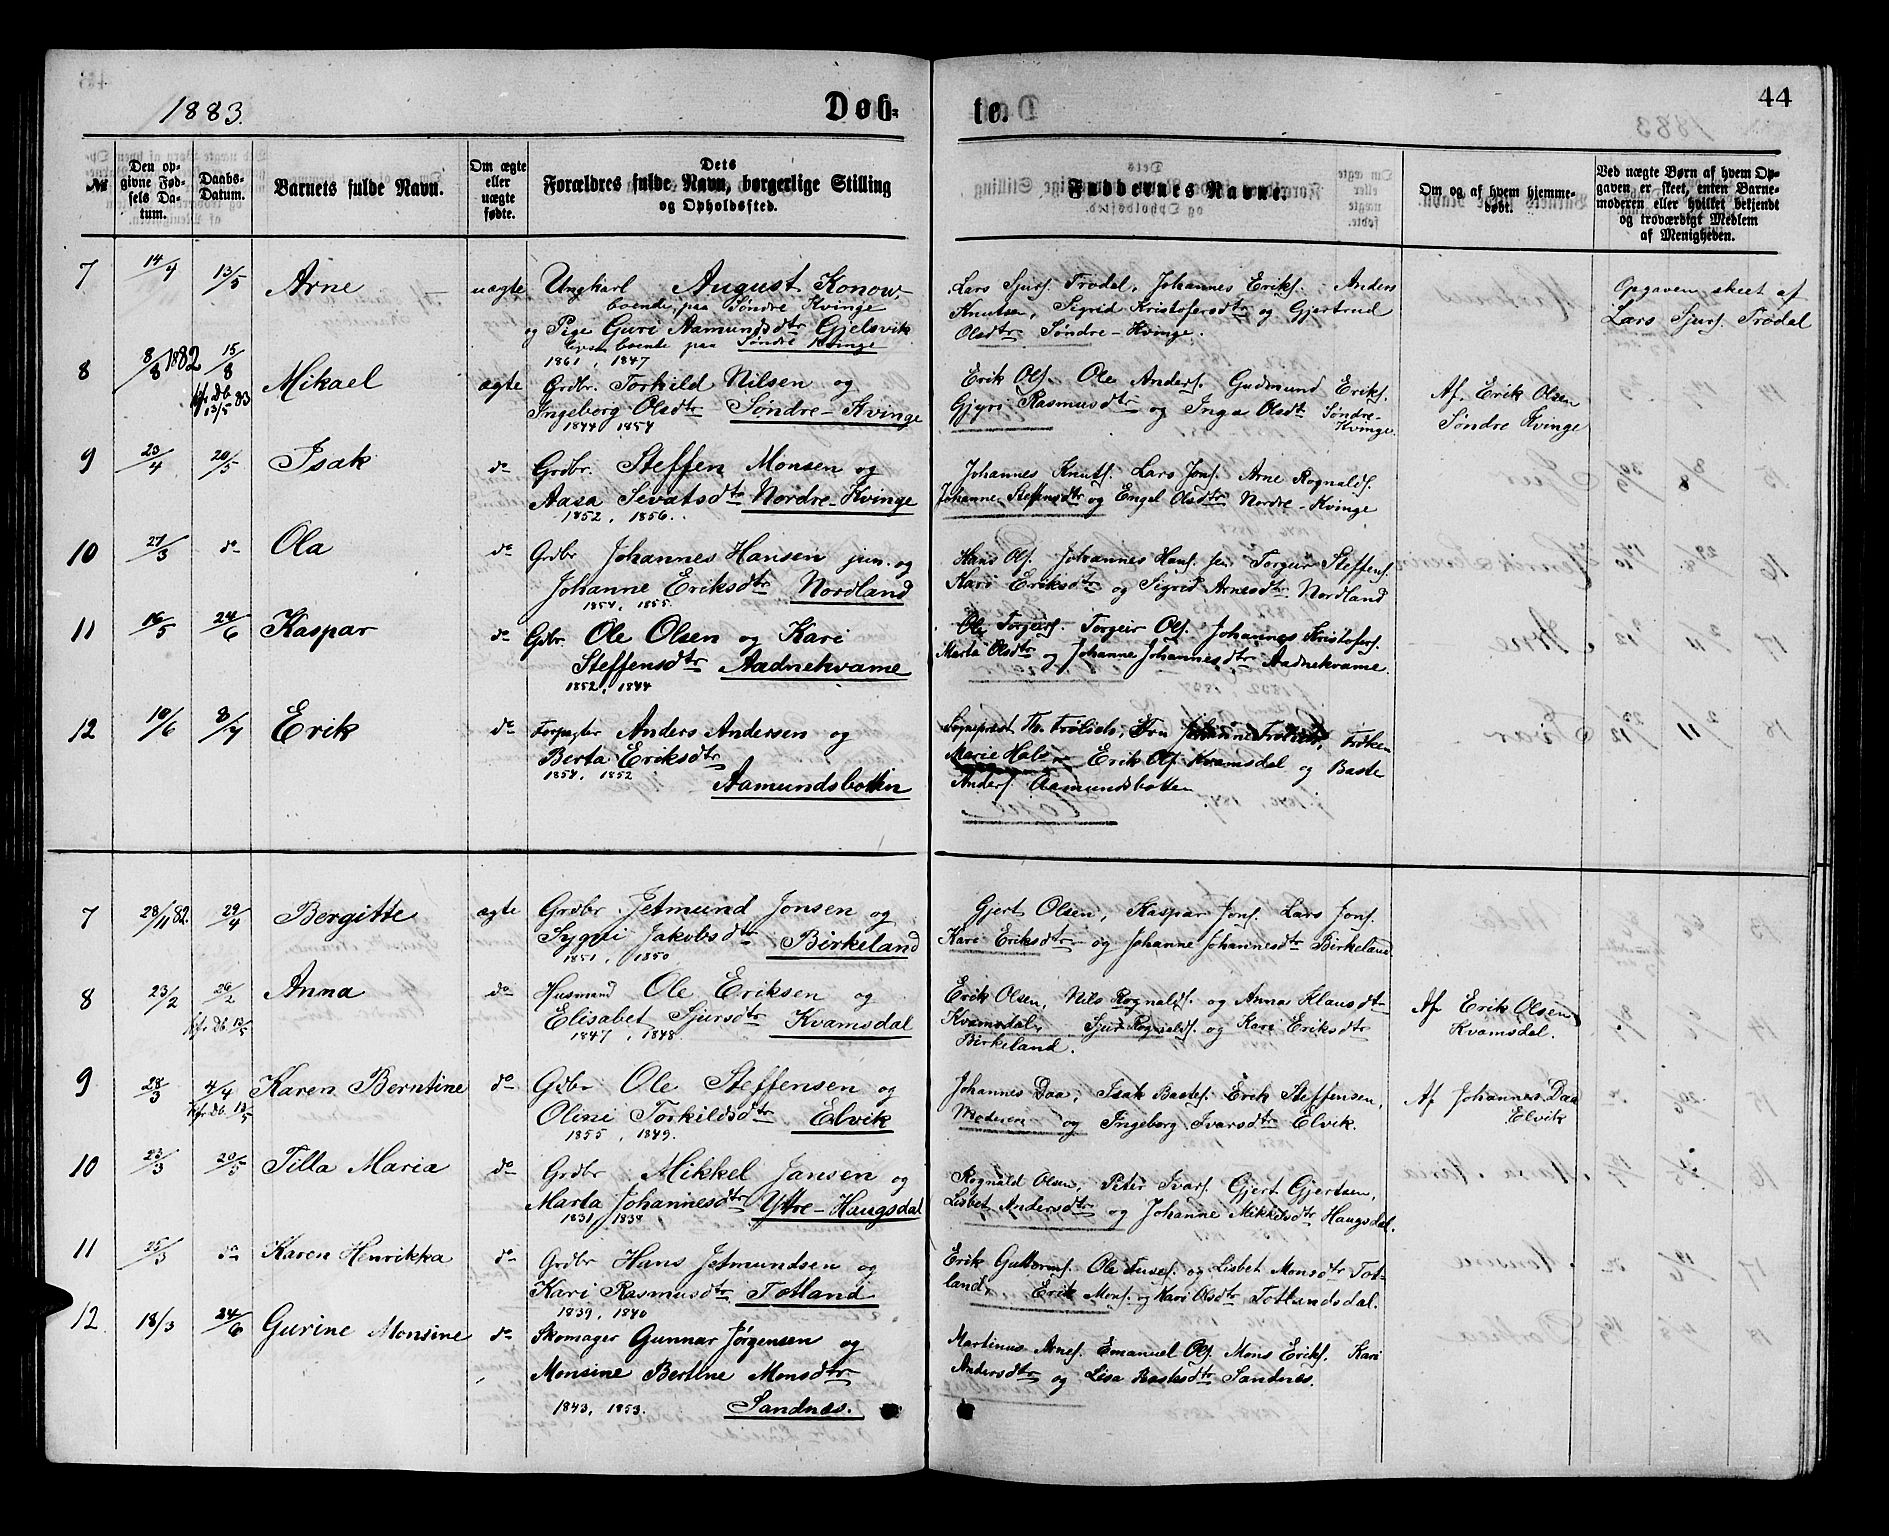 1883.
Døb-
te.
44
№
Den op-
givne Fød-
sels Da-
tum.
Daabs-
Datum.
Barnets fulde Navn.
Om ægte
eller
uægte
fødte.
Dets
Forældres fulde Navn, borgerlige Stilling
og Opholdssted.
Faddernes Navne.
Om og af hvem hjemme-
døbt.
Ved uægte Børn af hvem Op-
gaven er skeet, enten Barne-
moderen eller hvilket bekjendt
og troværdigt Medlem
af Menigheden.
7 14/4 13/5 Arne uægte Ungkarl August Konow,
boende paa Søndre Kvinge
og Pige Guri Aamundsdtr Gjelsvik
boende paa Søndre Kvinge
1861, 1847
Lars Sjurs. Trodal, Johannes Eriks. Anders
Knutsen, Sigrid Kristofersdtr og Gjertrud
Olsdtr Søndre-Kvinge.
Opgaven skeet af
Lars Sjurs. Trodal
8 8/8 1882 15/8 Mikael ægte Grdbr. Torkild Nilsen og
Kfr. Db. 13/5 83
Ingeborg Olsdtr Søndre-Kvinge
1844 1854
Erik Ols. Ole Anders. Gudmund Eriks.
Gjyri Rasmusdtr og Inga Olsdtr Søndre-
Kvinge.
Af Erik Olsen
Søndre Kvinge
9 23/4 20/5 Isak do Grdbr. Steffen Monsen og
Aasa Sevatsdtr Nordre-Kvinge
1852, 1856.
Johannes Knuts. Lars Jons. Arne Rognalds.
Johanne Steffensdtr og Engel Olsdtr Nordre-Kvinge
10 27/3 do Ola do Grdbr Johannes Hansen jun. og
Johanne Eriksdtr Nordland
1854, 1855.
Hans Ols. Johannes Hans. sen Torgeir Steffens.
Kari Eriksdtr og Sigrid Arnesdtr Nordland
11 16/5 24/6 Kaspar do Gdbr. Ole Olsen og Kari
Steffensdtr Aadnekvame
1852, 1844
Ole Torgeirs. Torgeir Ols. Johannes Kristofers.
Marta Olsdtr og Johanne Johannesdtr Aadnekvame.
12 10/6 8/7 Erik do Forpagter Anders Andersen og
Berta Eriksdtr
1854, 1852
Aamundsbotten
Sogneprest Th. Frölich, Fru Johanne Frölich, Frøken
Marie Hals Erik Ols. Kvamsdal og Baste
Anders. Aamundsbotten
7 28/11 82. 29/4 Bergitte ægte Grdbr Jetmund Jonsen og
Sygni Jakobsdtr Birkeland
1851, 1850
Gjert Olsen, Kaspar Jons. Lars Jons.
Kari Eriksdtr og Johanne Johannesdtr Birkeland
8 23/2 26/2 Anna do Husmand Ole Eriksen og
Kfr. Db. 13/5
Elisabet Sjursdtr Kvamsdal
1847, 1848.
Erik Olsen, Nils Rognalds. og Anna Klausdtr
Kvamsdal, Sjur Rognalds. og Kari Eriksdtr
Birkeland.
Af Erik Olsen
Kvamsdal.
9 28/3 4/4 Karen Berntine do Gdbr Ole Steffensen og
Kfr. Db. 13/5
Oline Torkildsdtr Elvik
1855, 1849.
Johannes Daa, Isak Bastes. Erik Steffensen,
Moderen og Ingeborg Ivarsdtr Elvik.
Af Johannes Daa
Elvik
10 23/3 20/5 Tilla Maria do Grdbr Mikkel Jansen og
Marta Johannesdtr Ytre-Haugsdal
1831, 1838
Rognald Olsen, Peter Ivars. Gjert Gjertsen,
Lisbet Andersdtr og Johanne Mikkelsdtr Haugsdal.
11 25/3 do Karen Henrikka do Grdbr Hans Jetmundsen og
Kari Rasmusdtr Totland
1839, 1840
Erik Guttorms. Ole Tuses. og Lisbet Monsdtr Tot-
land, Erik Mons. og Kari Olsdtr Totlandsdal.
12. 18/3 24/6 Gurine Monsine do Skomager Gunnar Jørgensen og
Monsine Bertine Monsdtr
1843, 1853. Sandnæs.
Martinus Arnes. Emanuel Ols. Mons Eriks. Kari
Andersdtr og Lisa Bastesdtr Sandnæs.